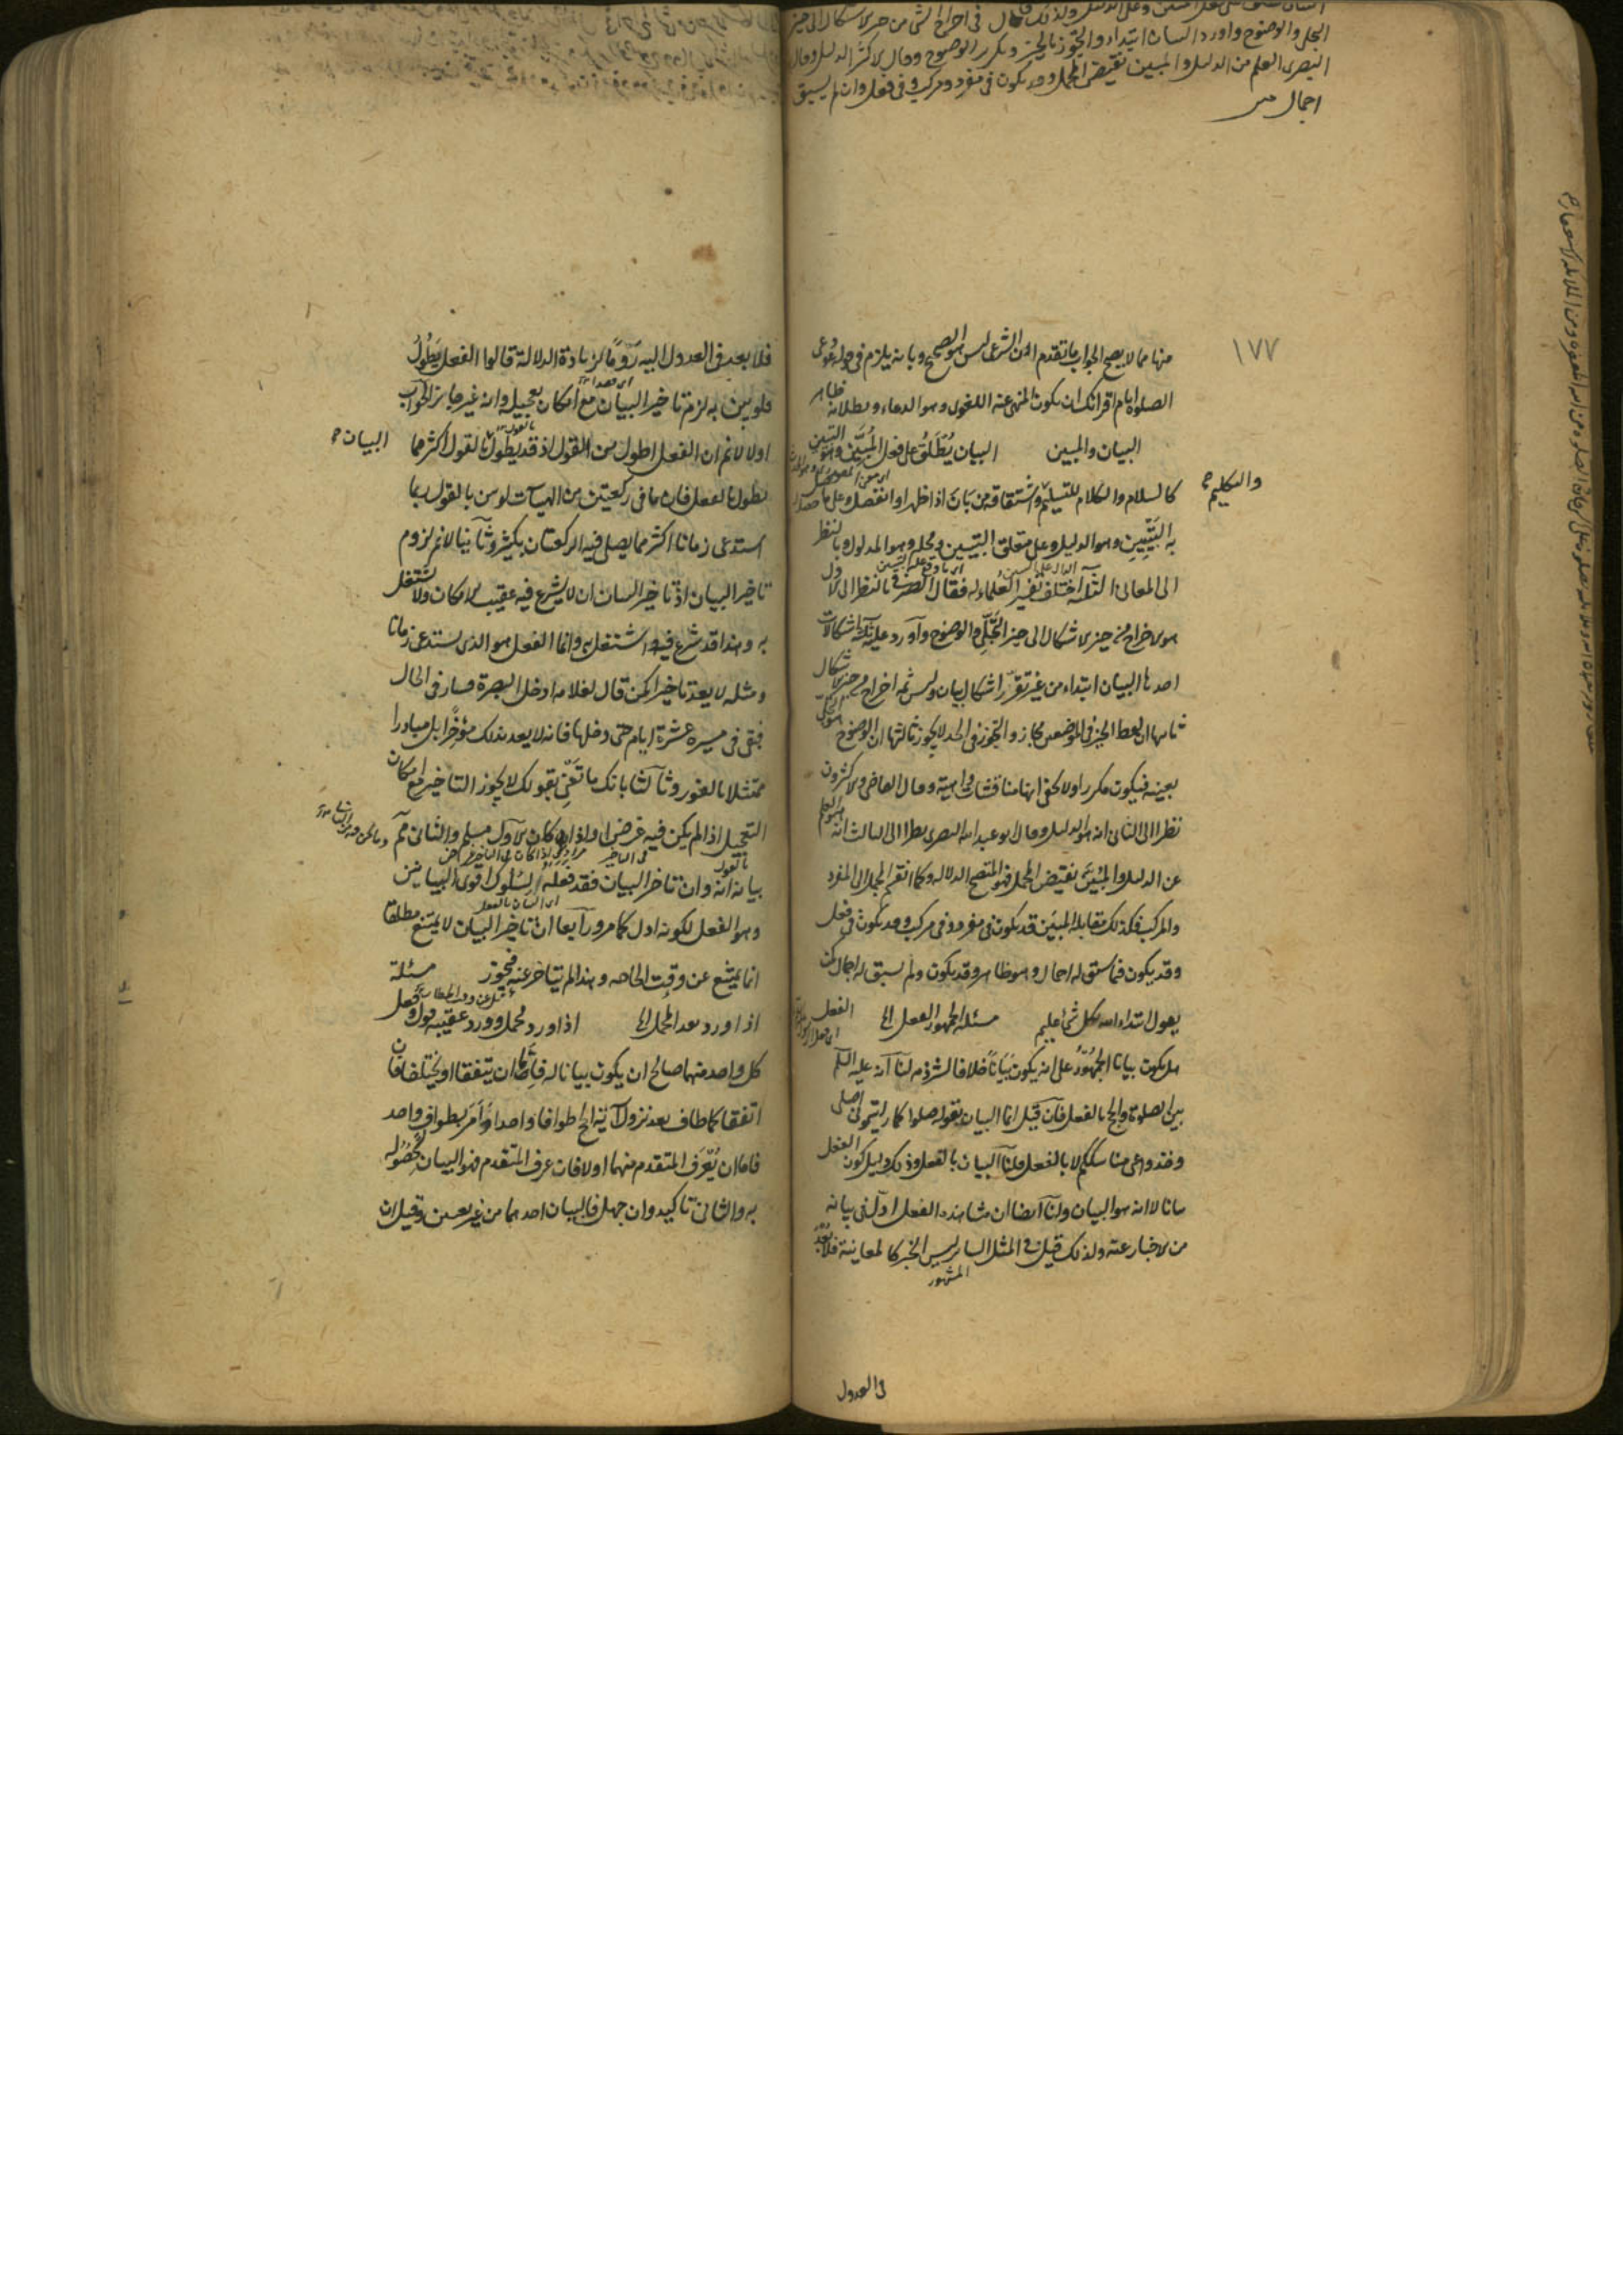 الجلى والوضوح واورد البيان ابتداء والتجوز بالحيز وتكرير الوضوح وقال الاكثر الدليل وقال
البصرى العلم من الدليل والمبين نقيض المجمل وقد يكون فى مفرد ومركب وفى فعل وان لم يسبق
اجمال
١٧٧
منها مما لا يصح الجواب ما تقدم ان الشرعى ليس هو الصحيح وبانه يلزم فى قوله دعى
الصلوة ايام اقرائك ان يكون المنهى عنه اللغوى وهو الدعاء وبطلانه ظاهر
البيان والمبين البيان يُطْلَقُ على فعل المُبَيِّن وهو التبيين
كالسلام والكلام للتسليم واشتقاقه من بَانَ اذا ظهر او انفصل وعلى ما حصل
والتكليم
به التَبْيِينِ وهو الدليل وعلى متعلق التبيين ومحله وهو المدلول وبالنظر
الى المعانى الثلثة اختلف تفسير العلماء له فقال الصيرفى بالنظر الى الاول
هو الاخراج من حيز الاشكال الى حيز التَجَلِّى والوضوح واورد عليه ثلثة اشكالات
احدها البيان ابتداء من غير تقرّر اشكال بيان وليس ثمه اخراج من حيز الاشكال
ثانيها ان لفظ الحيز فى الموضعين مجاز والتجوز فى الحد لا يجوز ثالثها ان الوضوح هو التجلى
بعينه فيكون مكررا ولا يخفى انها مناقشات واهية وقال القاضى والاكثرون
نظرا الى الثانى انه هو الدليل وقال ابو عبد الله البصرى نظرا الى الثالث انه هو العلم
عن الدليل والمبيَّن نقيض المجمل فهو المتضح الدلالة وكما انقسم المجمل الى المفرد
والمركب فكذلك مقابله المبيَّن قد يكون فى مفرد وفى مركب وقد يكون فى فعل
وقد يكون فيما سبق له اجمال وهو ظاهر وقد يكون ولم يسبق له اجمال كمن
يقول ابتداء الله بكل شئ عليم مسئلة الجمهور الفعل الخ الفعل
هل يكون بيانا الجُمْهُورُ على انه يكون بَيَانًا خلافا لشرذمة لنا انه عليه السلم
بين الصلوة والحج بالفعل فان قيل انما البيان بقوله صلوا كما رايتمونى اصلى
وخذوا عنى مناسككم لا بالفعل قلنا البيان بالفعل وذلك دليل كون الفعل
بيانا لا انه هو البيان ولنا ايضا ان مشاهدة الفعل ادل فى بيانه
من الاخبار عنه ولذلك قيل فى المثل السائر ليس الخبر كالمعاينة فلا بُعْدَ
المشهور
فى العدول
فلا بعد فى العدول اليه رَوْمًا لزيادة الدلالة قالوا الفعل يَطُولُ
فلو بين به لزم تاخير البيان مع امكان تعجيله وانه غير جائز الجواب
اولا لا نم ان الفعل اطول من القول اذ قد يطول بالقول اكثر مما
البيان
يطول بالفعل فان ما فى ركعتين من الهيآت لو بين بالقول ربما
استدعى زمانا اكثر مما يصلى فيه الركعتان بكثير وثانيا لا نم لزوم
تاخير البيان اذ تاخير البيان ان لا يشرع فيه عقيب الامكان ولا يشتغل
به وهذا قد شرع فيه واشتغل به وانما الفعل هو الذى يستدعى زمانا
ومثله لا يعد تاخيرا كمن قال لغلامه ادخل البصرة فسار فى الحال
فبقى فى مسيره عشرة ايام حتى دخلها فانه لا يعد بذلك مؤخِّرا بل مبادرا
ممتثلا بالفور وثالثا بانك ما تعنى بقولك لا يجوز التاخير مع امكان
التعجيل اذا لم يكن فيه غرض او اذا كان الاول مسلم والثانى مم
بيانه انه وان تاخر البيان فقد فعله لِسُلوك اقوى البيانين
وهو الفعل لكونه ادل كما مر ورابعا ان تاخير البيان لا يمتنع مطلقا
انما يمتنع عن وقت الحاجة وهذا لم يتاخر عنه فيجوز مسئلة
اذا ورد بعد المجمل الخ اذا ورد مجمل وورد عقيبه قول وفعل
كل واحد منهما صالح ان يكون بيانا له فامّا ان يتفقا او يختلفا فان
اتفقا كما طاف بعد نزول آية الحج طوافا واحدا وَأمَرَ بطواف واحد
فاما ان يُعْرَف المتقدم منهما او لا فان عرف المتقدم فهو البيان لحُصُوله
به والثانى تاكيد وان جهل فالبيان احدهما من غير تعيين وقيل ان